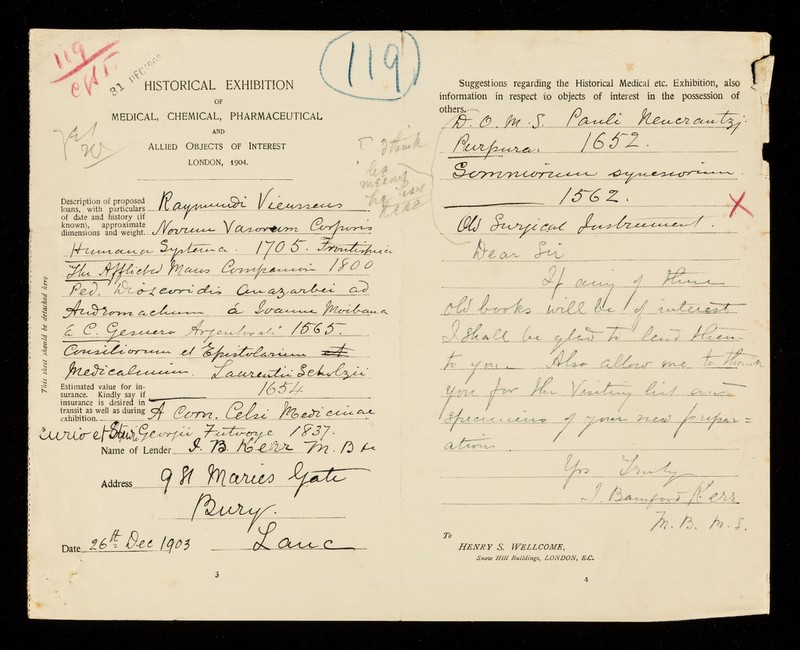 119
31 DEC 1903
119
HISTORICAL EXHIBITION
OF
MEDICAL, CHEMICAL, PHARMACEUTICAL
AND
ALLIED OBJECTS OF INTEREST
LONDON, 1904.
I think
he
means
he
This sheet should be detached here
Description of proposed
loans, with particulars
of date and history (if
known), approximate
dimensions and weight.
Raymundi Vieussens
Novum Vasorum Corporis
Humana Systema. 1705. Frontispiece
The Afflicted Mans Companion 1800
Ped. Dioscoridis Anazarbei ad
Andromachum á Ioanne Moibana
& C. Gesnero 1565.
Consiliorum et Epistolarum et
Medicalium. Laurentii Scholzii
1654
Estimated value for in-
surance. Kindly say if
insurance is desired in
transit as well as during
exhibition.
A Corn. Celsi Medicinae
curio et Georgii Futvoye 1837.
Name of Lender J. B. Kerr M. B &c
Address 9 St Maries Gate
Bury.
Date 26th Dec 1903 Lanc
3
Suggestions regarding the Historical Medical etc. Exhibition, also
information in respect to objects of interest in the possession of
others.
D. O. M. S. Pauli Neucrantzj
Purpura. 1652.
1562.
Old Surgical Instrument.
X
Dear Sir
If any of these
old books will be of interest
I shall be glad to lend them
to you. Also allow me to thank
you for the Visiting list and
specimens of your new prepar=
ations.
Yrs Truly
J. Bamford Kerr
M. B. M. S.
To
HENRY S. WELLCOME,
Snow Hill Buildings, LONDON, E.C.
4